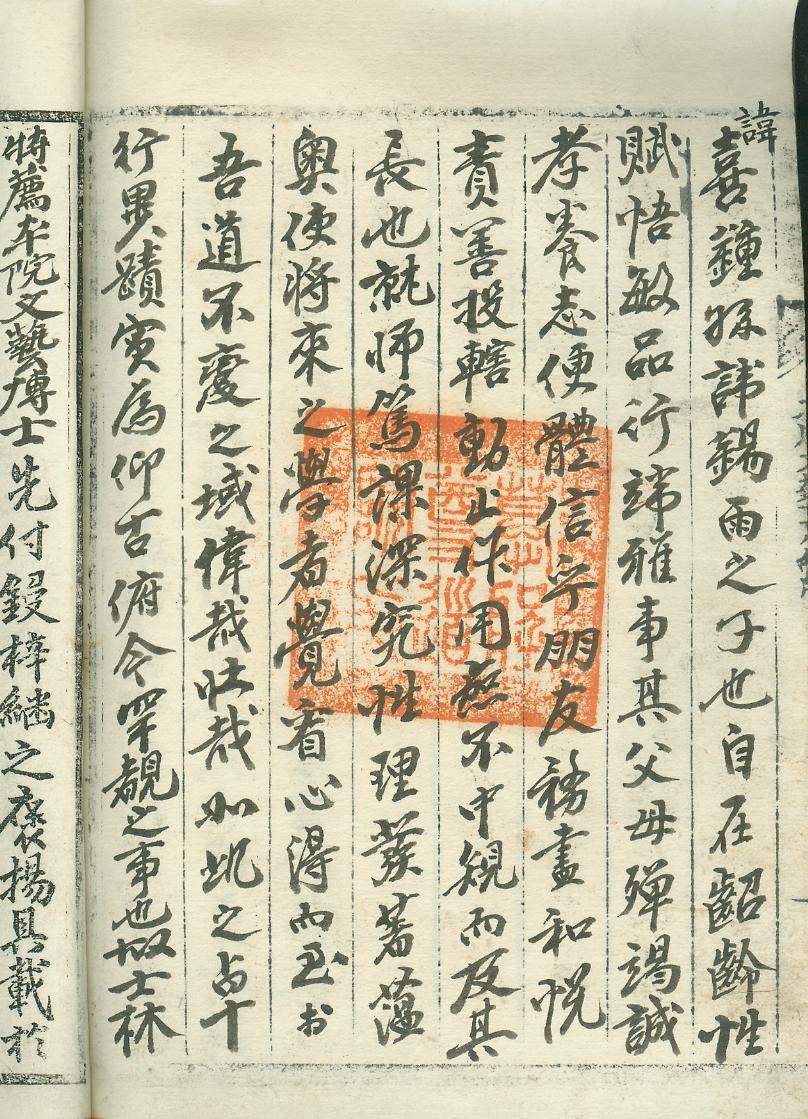 諱
喜鍾孫諱錫雨之子也自在齠齡性
賦悟敏品行端雅事其父母殫竭誠
孝養志便體信乎朋友務盡和悅
責善投轄動止作用無不中規而及其
長也就師篤課深究性理蘊
奧使將來之學者覺着心得而
吾道不變之域偉哉壯哉如此之占十
行異蹟實爲仰古俯今罕覩之事也故士林
特薦本院文藝博士先付鋟梓繡之褒揚具載於